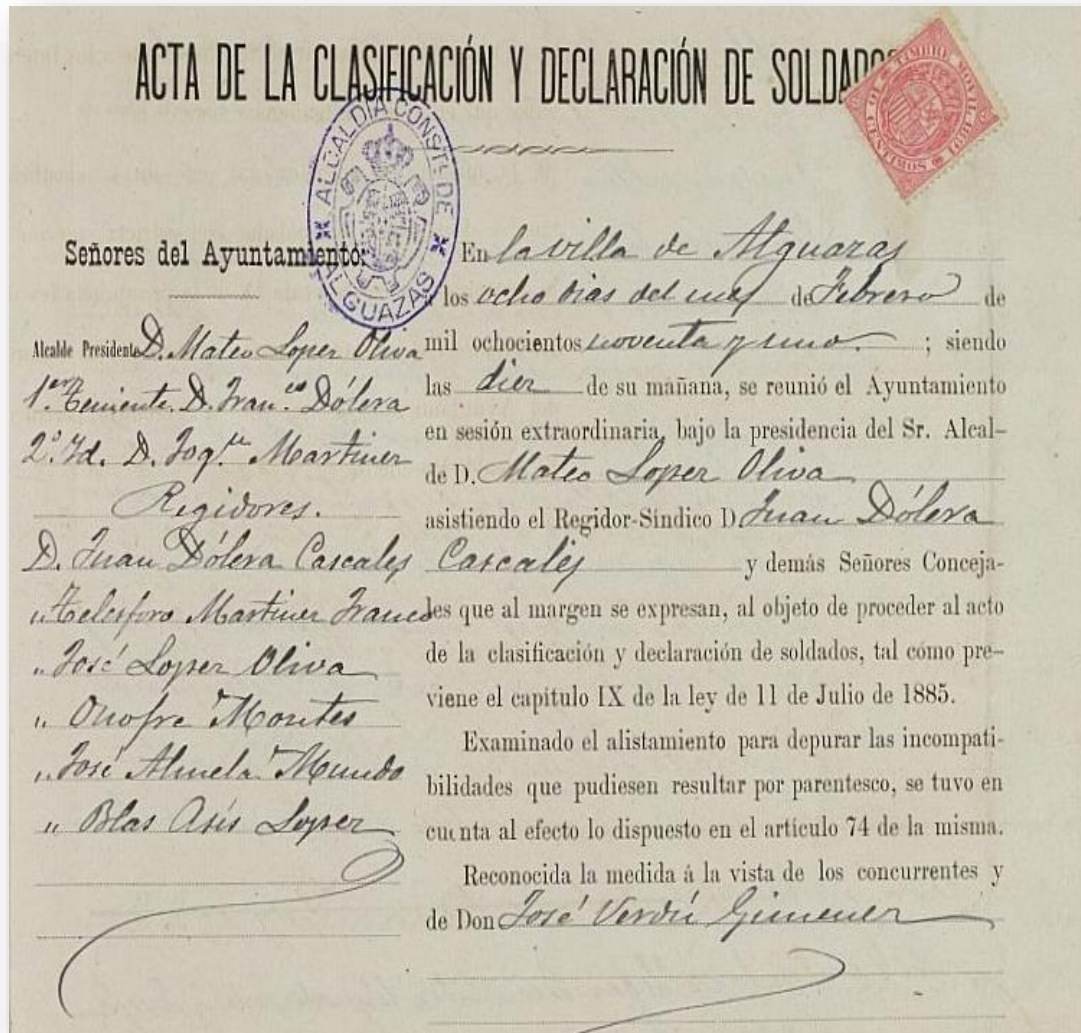 ACTA DE LA CLASIFICACIÓN Y DECLARACIÓN DE SOLDADOS
ALCALDÍA CONSTL. DE
ALGUAZAS
TIMBRE MOVIL 1891
10 CENTIMOS
Señores del Ayuntamiento:
Alcalde Presidente D. Mateo Lopez Oliva
1.er Teniente. D. Fran.co Dólera
2.º Id. D. Joq.n Martinez
Regidores.
D. Juan Dólera Cascales
" Telesforo Martinez Franco
" José Lopez Oliva
" Onofre Montes
" José Almela Mundo
" Blas Asís Lopez
En la villa de Alguazas
á los ocho dias del mes de Febrero de
mil ochocientos noventa y uno. ; siendo
las diez de su mañana, se reunió el Ayuntamiento
en sesión extraordinaria, bajo la presidencia del Sr. Alcal-
de D. Mateo Lopez Oliva
asistiendo el Regidor-Síndico D. Juan Dólera
Cascales y demás Señores Conceja-
les que al margen se expresan, al objeto de proceder al acto
de la clasificación y declaración de soldados, tal como pre-
viene el capitulo IX de la ley de 11 de Julio de 1885.
Examinado el alistamiento para depurar las incompati-
bilidades que pudiesen resultar por parentesco, se tuvo en
cuenta al efecto lo dispuesto en el artículo 74 de la misma.
Reconocida la medida á la vista de los concurrentes y
de Don José Verdú Gimenez